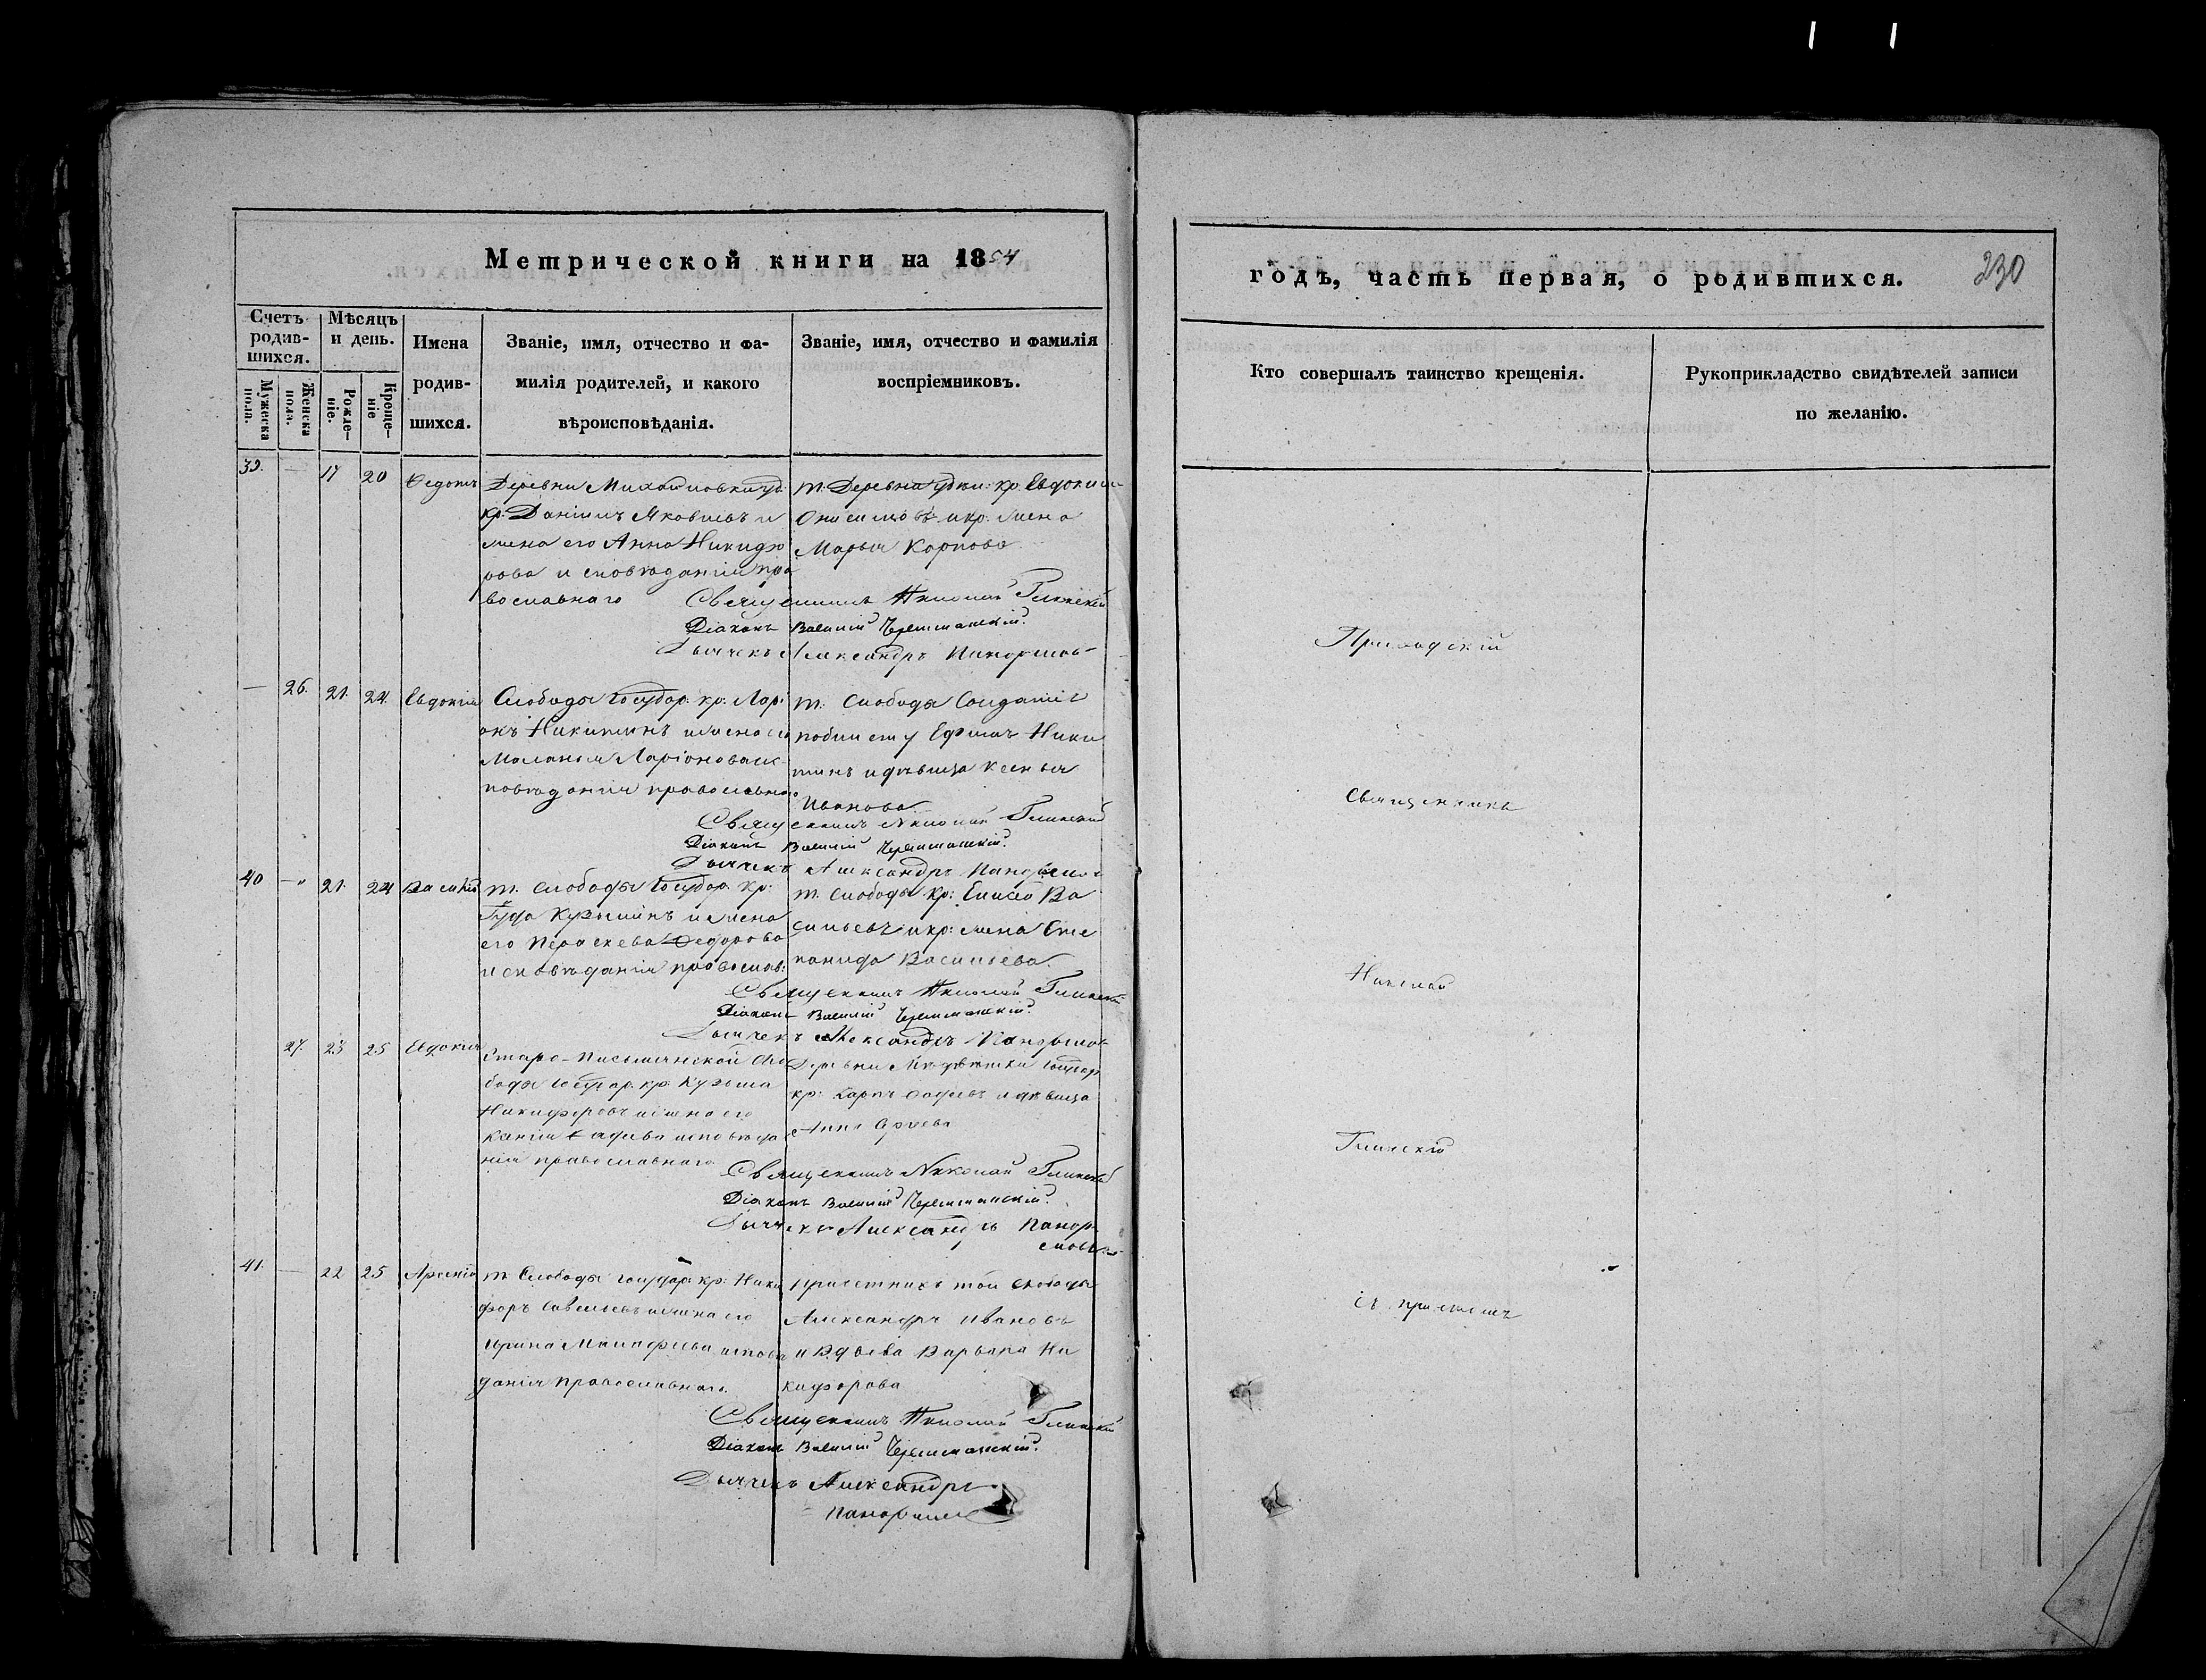 Метрической книги на 1854
Счетъ родив-шихся.
Мѣсяцъ и день.
Имена родив-шихся.
Званіе, имя, отчество и фа-
милія родителей, и какого
вѣроисповѣданія.
Званіе, имя, отчество и фамилія
воспріемниковъ.
Мужеска пола.
Женска пола.
Рожде-ніе.
Креще-ніе
39. — 17 20
Деревни Михайловки уд.
кр. Даніилъ Яковлевъ и
жена его Анна Никифо
рова исповѣданія пра
вославнаго
т. Деревни удѣл: кр. Евдокимъ
Онисимовъ и кр. жена
Марья Карпова
Священникъ Николай Глинскій
Діаконъ Василій Черемшанскій.
Дьячекъ Александръ
— 26. 21. 24. Евдокія
Слободы Государ: кр: Лари
онъ Никитинъ и жена его
Маланья Ларіонова ис
повѣданія православнаго
т. Слободы
Ефимъ Ники
тинъ и дѣвица Ксенья
Иванова
Священникъ Николай Глинскій
Діаконъ Василій Черемшанскій.
Дьячекъ Александръ
40 — 21. 24 Василій
т. Слободы Государ. кр:
Іуда Кузьминъ и жена
его Параскева Федорова
исповѣданія православ:
т. Слободы кр: Елисей Ва
сильевъ и кр: жена Сте
панида Васильева.
Священникъ Николай Глинскій
Діаконъ Василій Черемшанскій.
Дьячекъ Александръ
27. 23 25 Евдокія
Старо-Письмянской Сло
боды Государ. кр. Кузьма
Никифоровъ и жена его
исповѣда
нія православнаго
Деревни
кр: Карпъ и дѣвица
Анна
Священникъ Николай Глинскій
Діаконъ Василій Черемшанскій.
Дьячекъ Александръ
41. — 22 25 Арсеній
т. Слободы Государ: кр: Ники
форъ Савельевъ и жена его
Ирина исповѣ
данія православнаго.
Причетникъ той Слободы
Александръ Ивановъ
и Вдова Варвара Ни
кифорова
Священникъ Николай Глинскій
Діаконъ Василій Черемшанскій.
Дьячекъ Александръ
годъ, часть первая, о родившихся.
230
Кто совершалъ таинство крещенія.
Рукоприкладство свидѣтелей записи
по желанію.
Приходскій
Священникъ
Николай
Глинскій
съ причтомъ